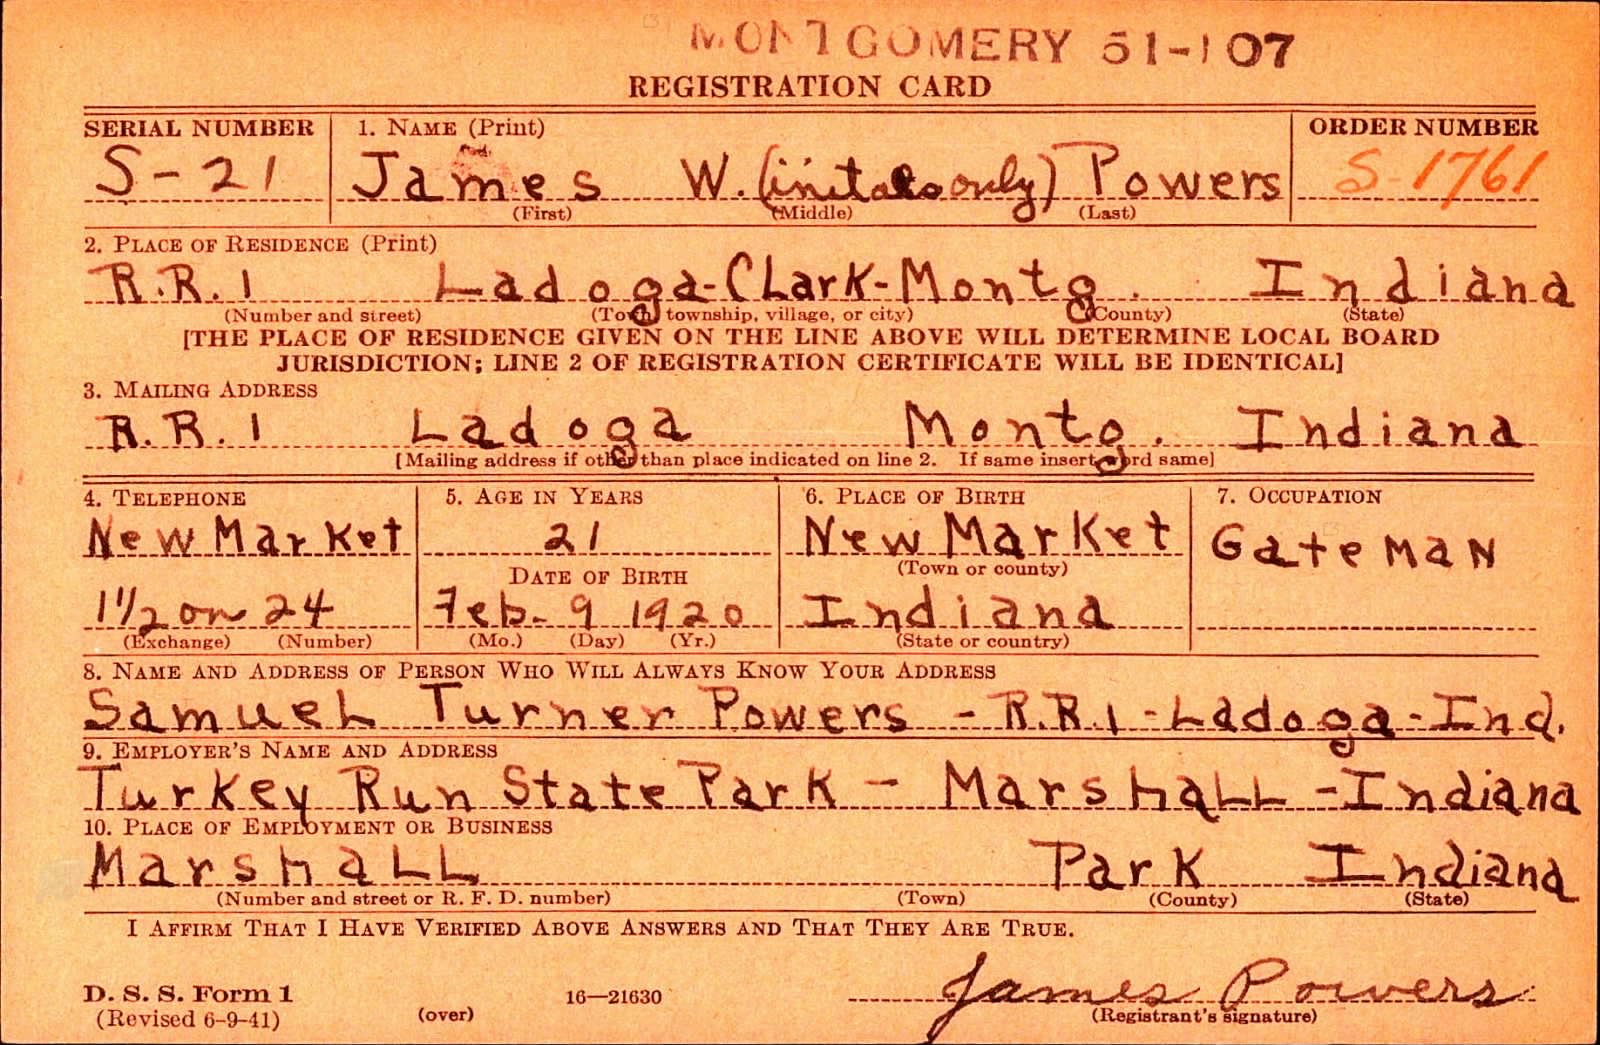 MONTGOMERY 51-107
REGISTRATION CARD
SERIAL NUMBER 1. NAME (Print) ORDER NUMBER
S-21 James W. (initals only) Powers S-1761
(First) (Middle) (Last)
2. PLACE OF RESIDENCE (Print)
R.R. 1 Ladoga-Clark-Montg. Indiana
(Number and street) (Town, township, village, or city) (County) (State)
[THE PLACE OF RESIDENCE GIVEN ON THE LINE ABOVE WILL DETERMINE LOCAL BOARD
JURISDICTION; LINE 2 OF REGISTRATION CERTIFICATE WILL BE IDENTICAL]
3. MAILING ADDRESS
R.R. 1 Ladoga Montg. Indiana
[Mailing address if other than place indicated on line 2. If same insert word same]
4. TELEPHONE 5. AGE IN YEARS 6. PLACE OF BIRTH 7. OCCUPATION
New Market 21 New Market Gateman
DATE OF BIRTH (Town or county)
1 1/2 on 24 Feb. 9 1920 Indiana
(Exchange) (Number) (Mo.) (Day) (Yr.) (State or country)
8. NAME AND ADDRESS OF PERSON WHO WILL ALWAYS KNOW YOUR ADDRESS
Samuel Turner Powers - R.R. 1 - Ladoga - Ind.
9. EMPLOYER'S NAME AND ADDRESS
Turkey Run State Park - Marshall - Indiana
10. PLACE OF EMPLOYMENT OR BUSINESS
Marshall Park Indiana
(Number and street or R. F. D. number) (Town) (County) (State)
I AFFIRM THAT I HAVE VERIFIED ABOVE ANSWERS AND THAT THEY ARE TRUE.
James Powers
D. S. S. Form 1 16—21630
(Revised 6-9-41) (over) (Registrant's signature)